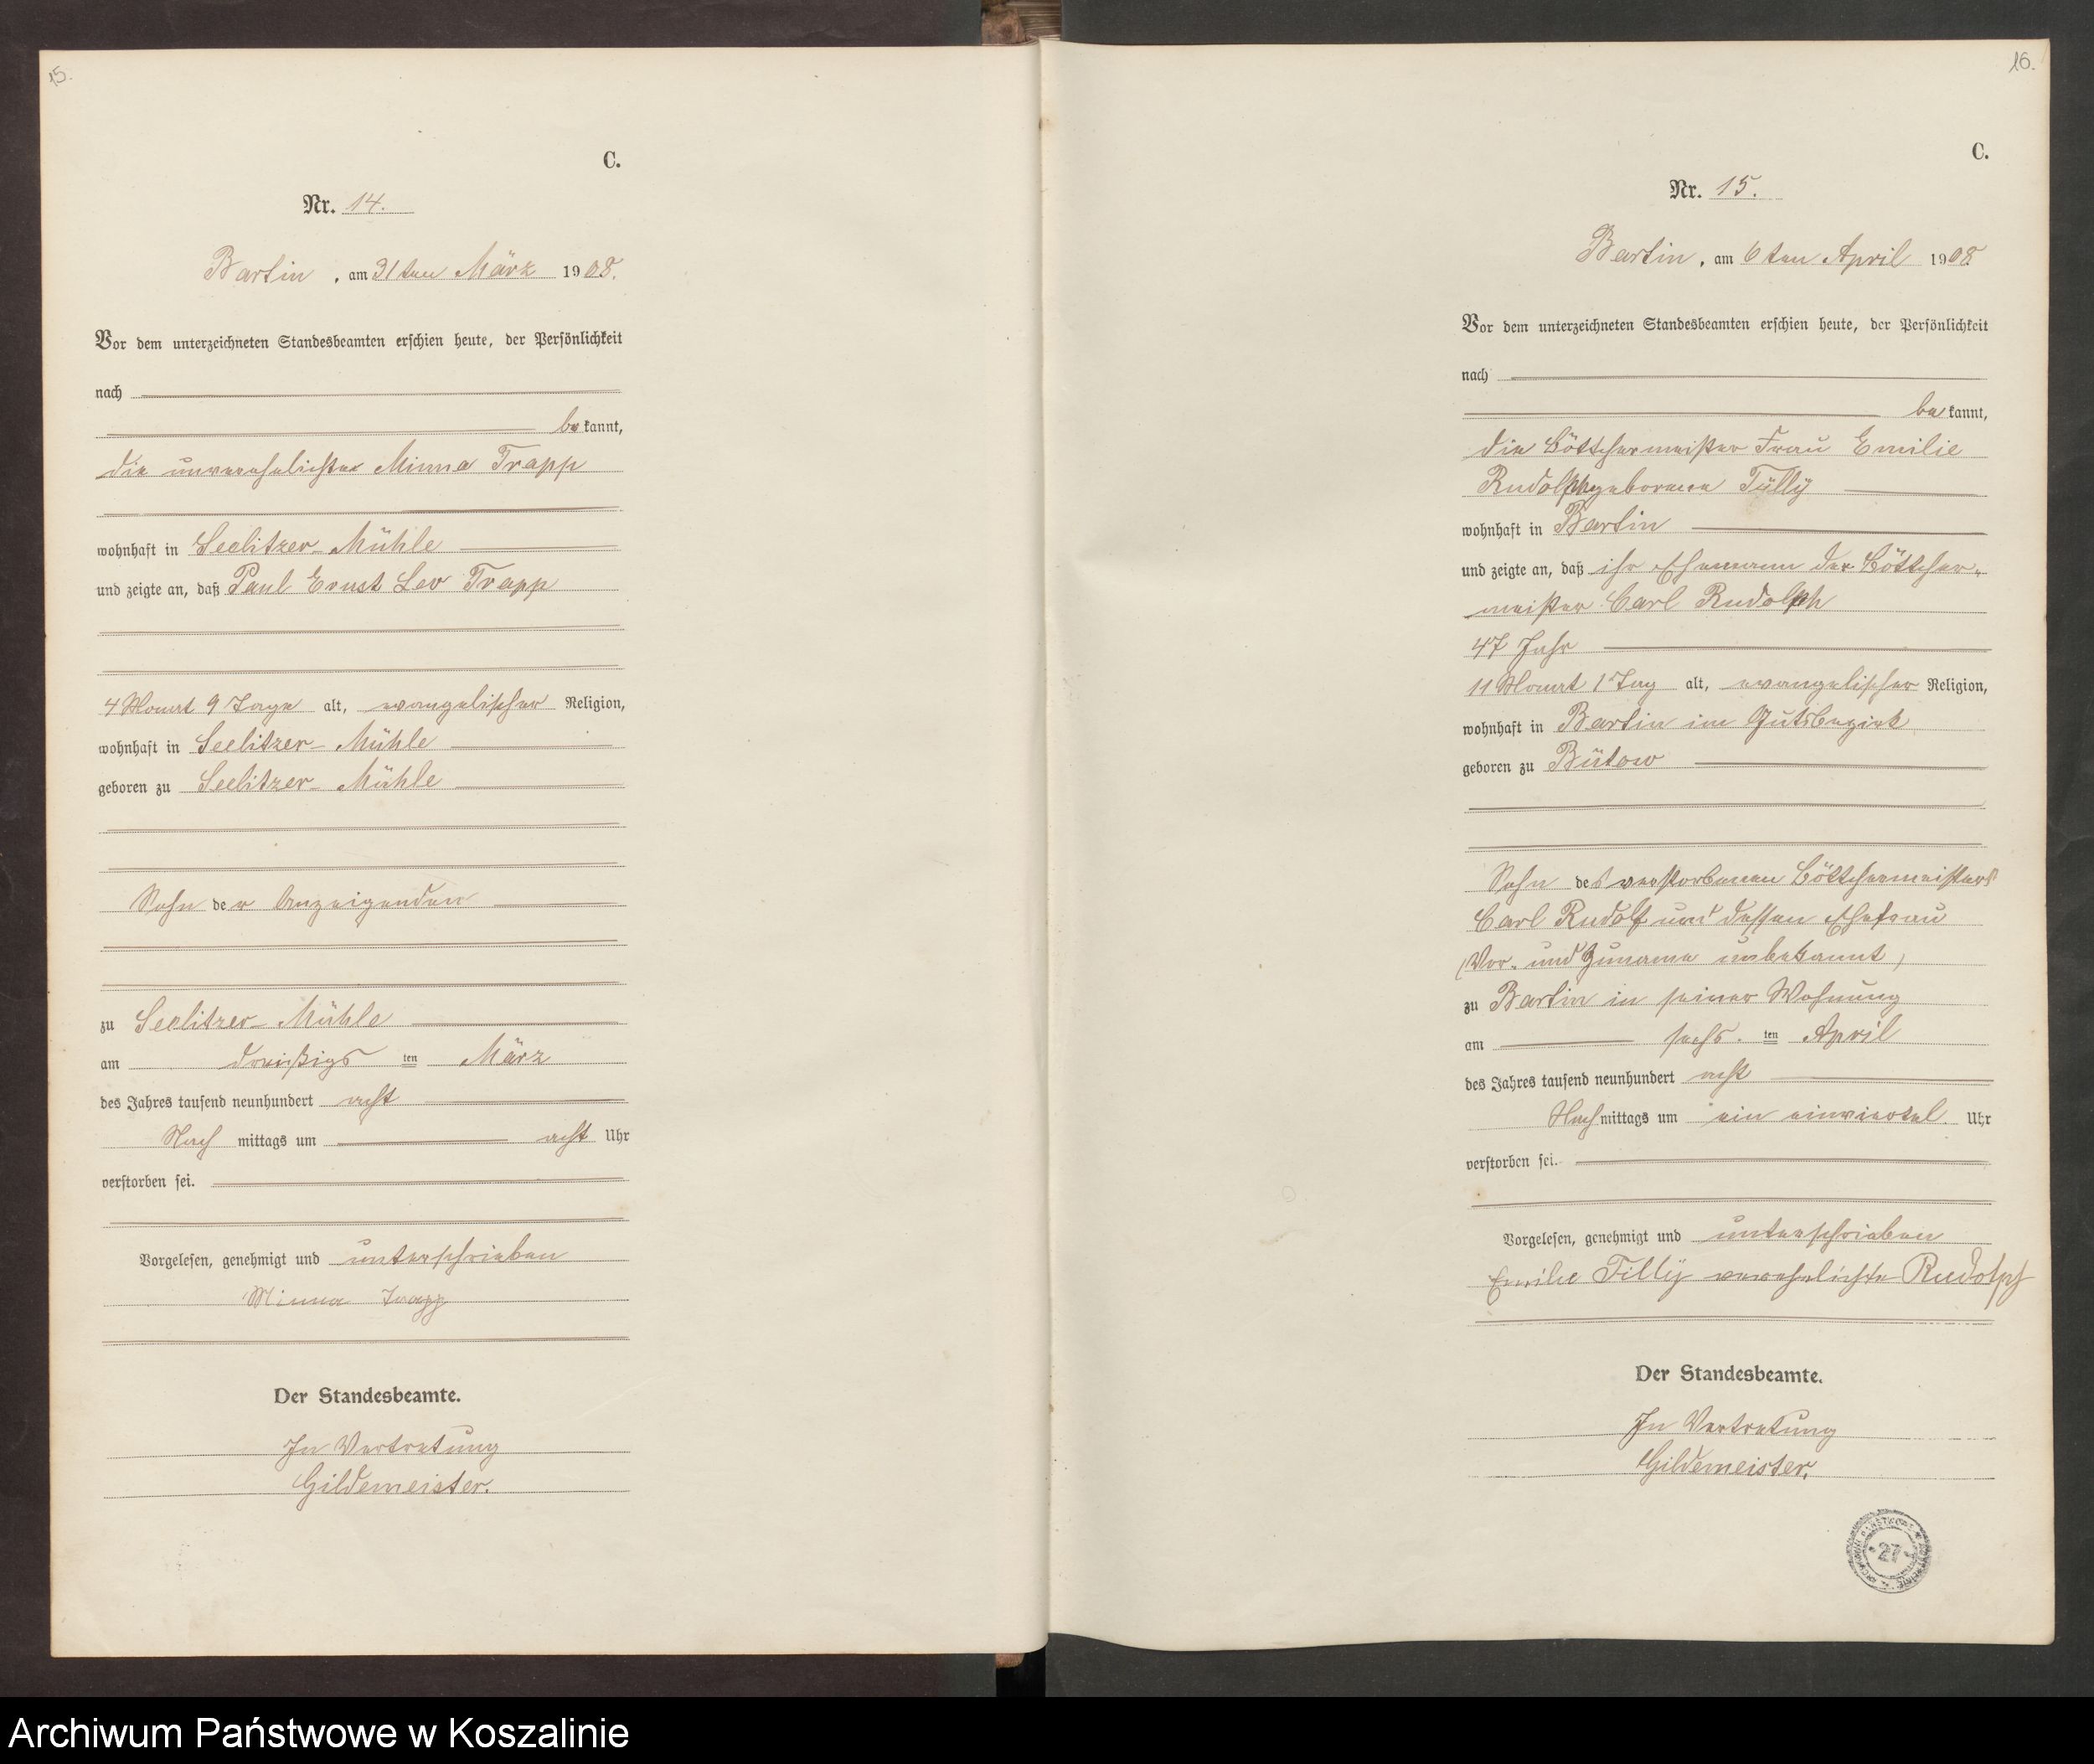 15.
C.
Nr. 14.
Bartin, am 31ten März 1908.
Vor dem unterzeichneten Standesbeamten erschien heute, der Persönlichkeit
nach
bekannt,
die unverehelichte Minna Trapp
wohnhaft in Seelitzer-Mühle
und zeigte an, daß Paul Ernst Leo Trapp
4 Monat 9 Tage alt, evangelischer Religion,
wohnhaft in Seelitzer-Mühle
geboren zu Seelitzer-Mühle
Sohn der Anzeigenden
zu Seelitzer-Mühle
am dreißigsten März
des Jahres tausend neunhundert acht
Nachmittags um acht Uhr
verstorben sei.
Vorgelesen, genehmigt und unterschrieben
Minna Trapp
Der Standesbeamte.
In Vertretung
Gildemeister.
16.
C.
Nr. 15.
Bartin, am 6ten April 1908
Vor dem unterzeichneten Standesbeamten erschien heute, der Persönlichkeit
nach
bekannt,
die Böttchermeister Frau Emilie
Rudolph geborene Tylly
wohnhaft in Bartin
und zeigte an, daß ihr Ehemann der Böttcher-
meister Carl Rudolph
47 Jahr
11 Monat 1 Tag alt, evangelischer Religion,
wohnhaft in Bartin im Gutsbezirk
geboren zu Bütow
Sohn des verstorbenen Böttchermeisters
Carl Rudolf und dessen Ehefrau
(Vor- und Zuname unbekannt)
zu Bartin in seiner Wohnung
am sechs.ten April
des Jahres tausend neunhundert acht
Nachmittags um ein einviertel. Uhr
verstorben sei.
Vorgelesen, genehmigt und unterschrieben
Emilie Tilly verehelichte Rudolph
Der Standesbeamte.
In Vertretung
Gildemeister.
27
Archiwum Państwowe w Koszalinie